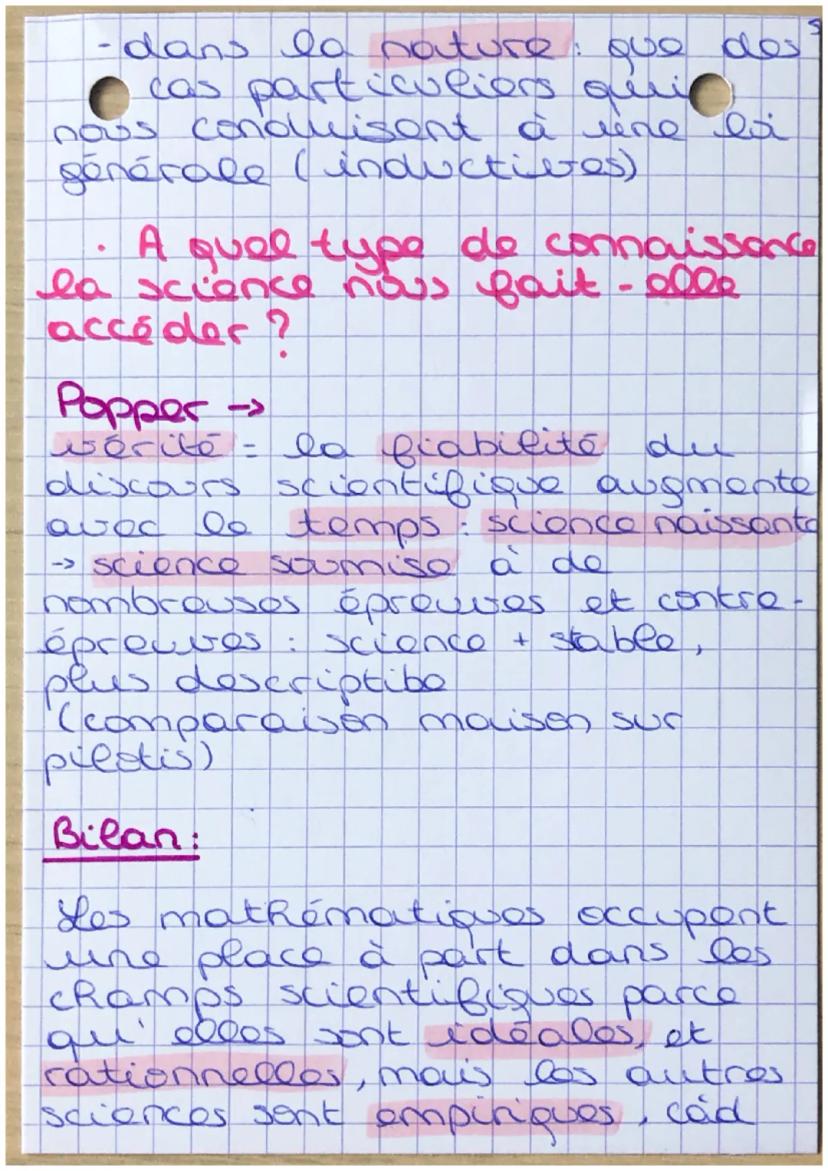 - dans la nature : que des
cas particuliers qui
nous conduisent à une loi
générale (inductives)
· A quel type de connaissance
la science nous fait - elle
accéder ?
Popper →
vérité = la fiabilité du
discours scientifique augmente
avec le temps : science naissante
→ science soumise à de
nombreuses épreuves et contre-
épreuves : science + stable,
plus descriptibe
(comparaison maison sur
pilotis)
Bilan :
Les mathématiques occupent
une place à part dans les
champs scientifiques parce
qu'elles sont idéales, et
rationnelles, mais les autres
sciences sont empiriques, càd